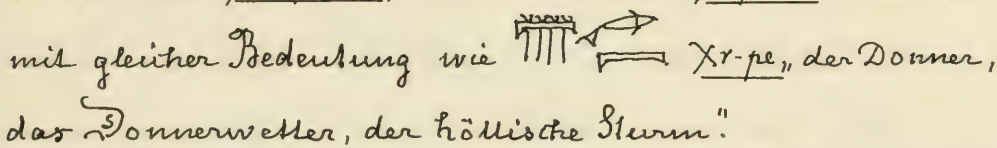 mit gleicher Bedeutung wie Xr-pe „der Donner,
das Donnerwetter, der höllische Sturm".